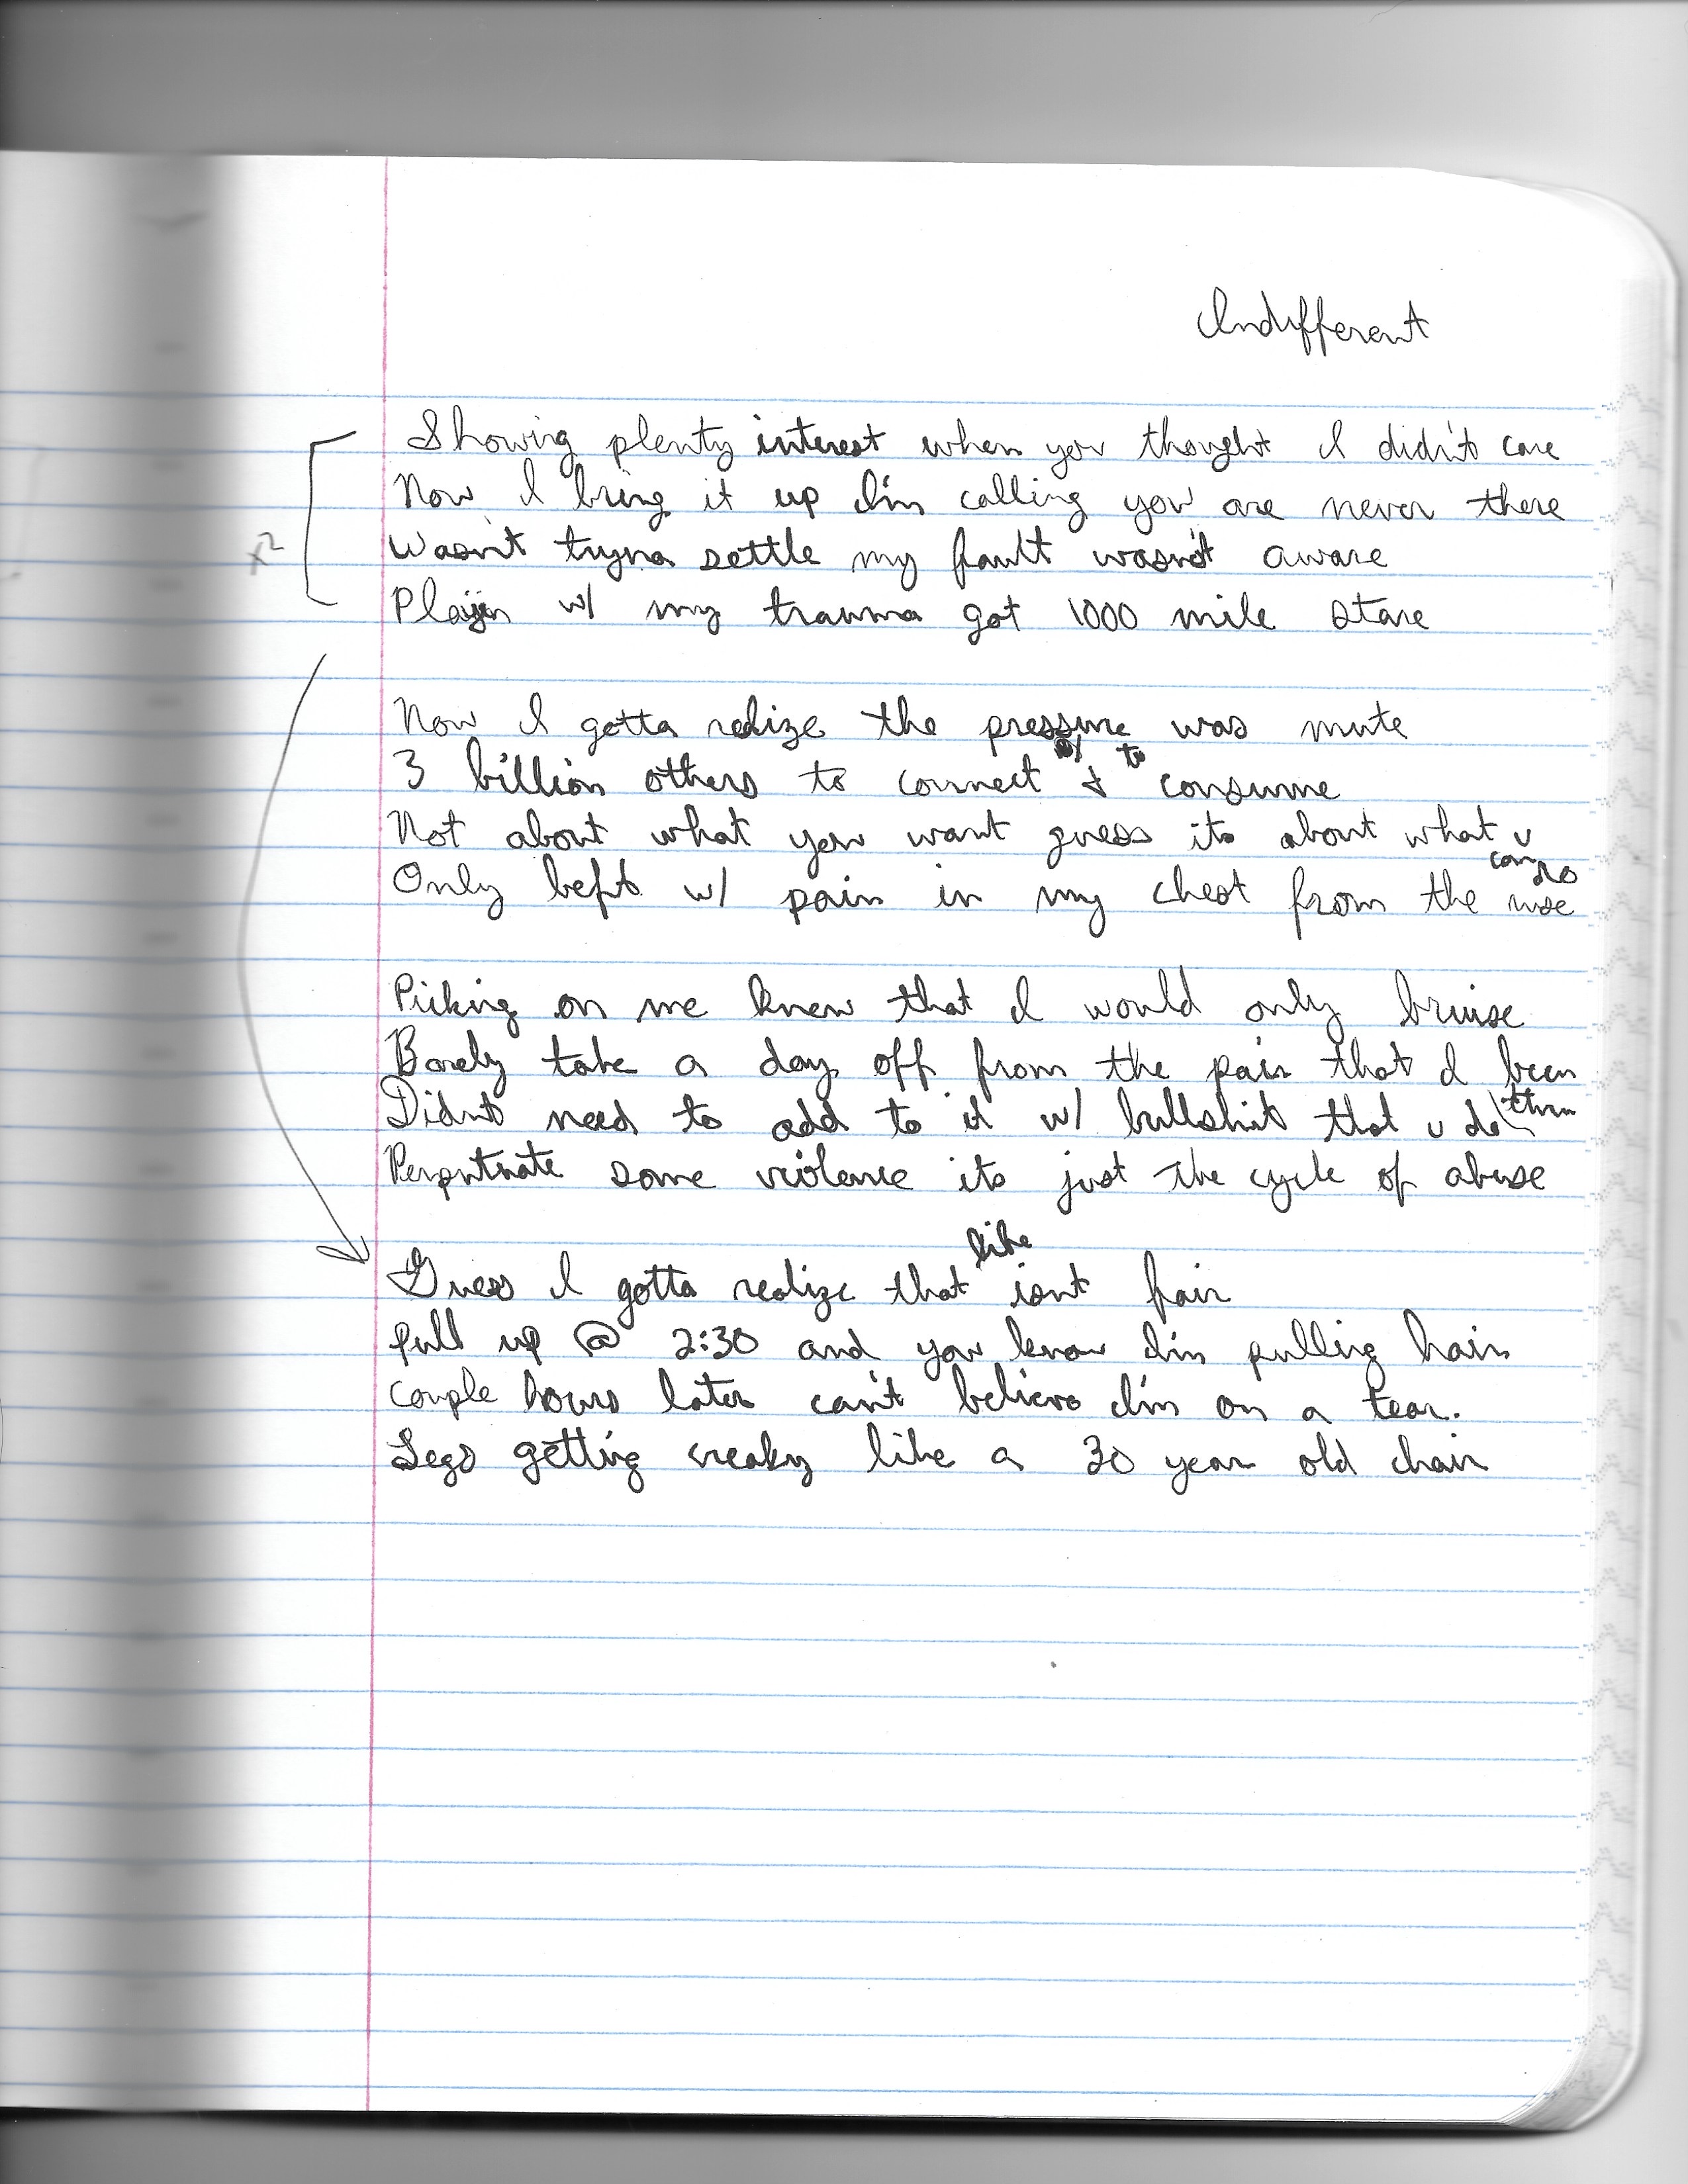 Indifferent
x2
Showing plenty interest when you thought I didn't care
Now I bring it up I'm calling you are never there
Wasn't tryna settle my fault wasn't aware
Playin w/ my trauma got 1000 mile stare
Now I gotta realize the pressure was mute
3 billion others to connect w/ & to consume
Not about what you want guess its about what u can do
Only left w/ pain in my chest from the
Picking on me knew that I would only bruise
Barely take a day off from the pain that I been thru
Didnt need to add to it w/ bullshit that u do
Perputuate some violence its just the cycle of abuse
Guess I gotta realize that like isnt fair
Pull up @ 2:30 and you know I'm pulling hair
Couple hours later can't believe I'm on a tear.
Legs getting creaky like a 30 year old chair